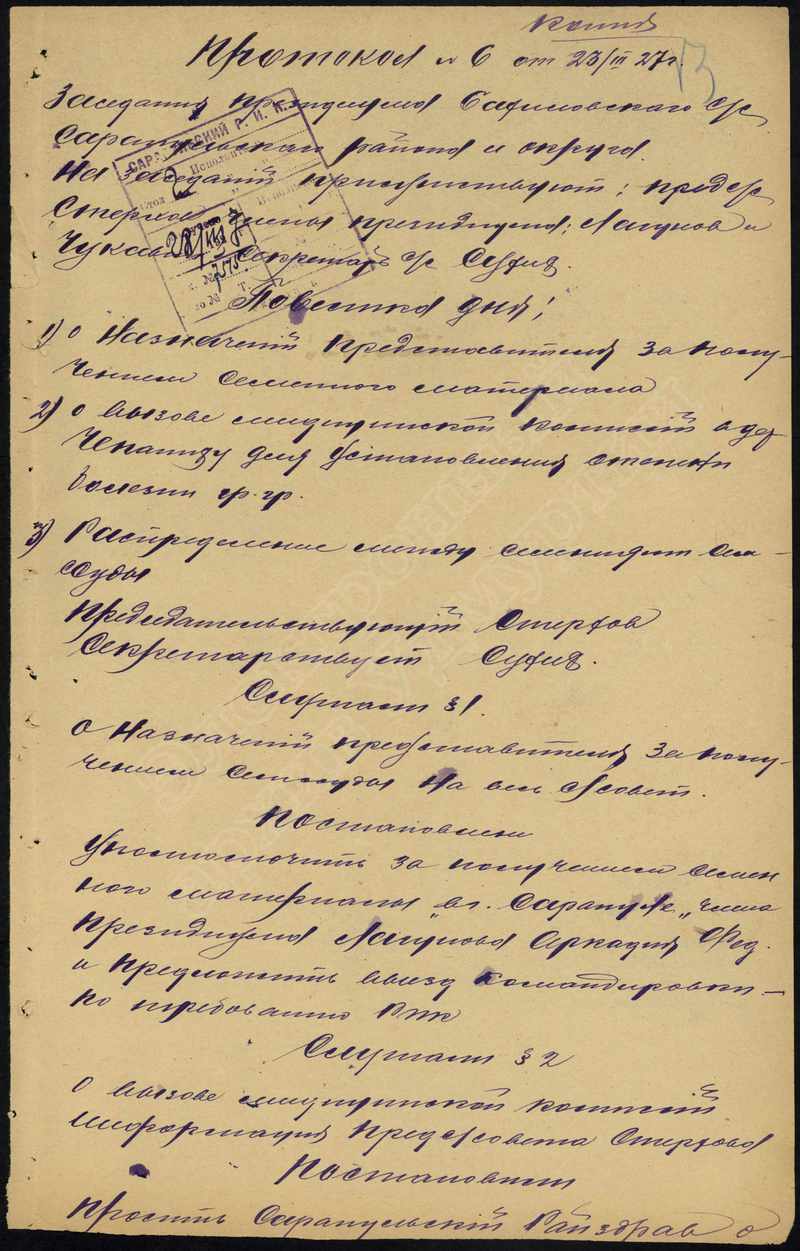 копия
Протокол № 6 от 23/III 27 г.
13
Заседания президиума с/с
Сарапульского района и округа.
На заседаний присутствуют: предс/с
Стерхов члены президиума: Лагунов и
Секретарь с/с
САРАПУЛЬСКИЙ Р. И. К.
Стол 2 Исполнит
28/III 27
№ 7575
Повестка дня:
1) о Назначений представителя за полу-
чением семенного материала
2) о вызове медицинской комиссий в дер
для установления степени
болезни гр. гр.
3) Распределение между селениями сем-
ссуды
Председательствующий Стерхов
Секретарствует
Слушали § 1.
о Назначений представителя за полу-
чением семссуды на весь с/совет.
Постановлени
Уполномочить за получением семен
ного материала в г. Сарапуле „члена
президиума Лагунова Аркадия Фед.
и предложить выезд командировки –
по требованию РИК
Слушали § 2
о вызове медицинской комиссий
информация предс/совета Стерхова
Постановили
просить Сарапульский Райздрав о